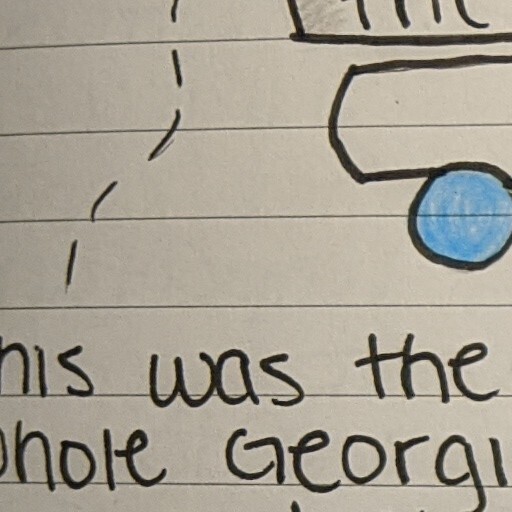 his was the
hole Georgi